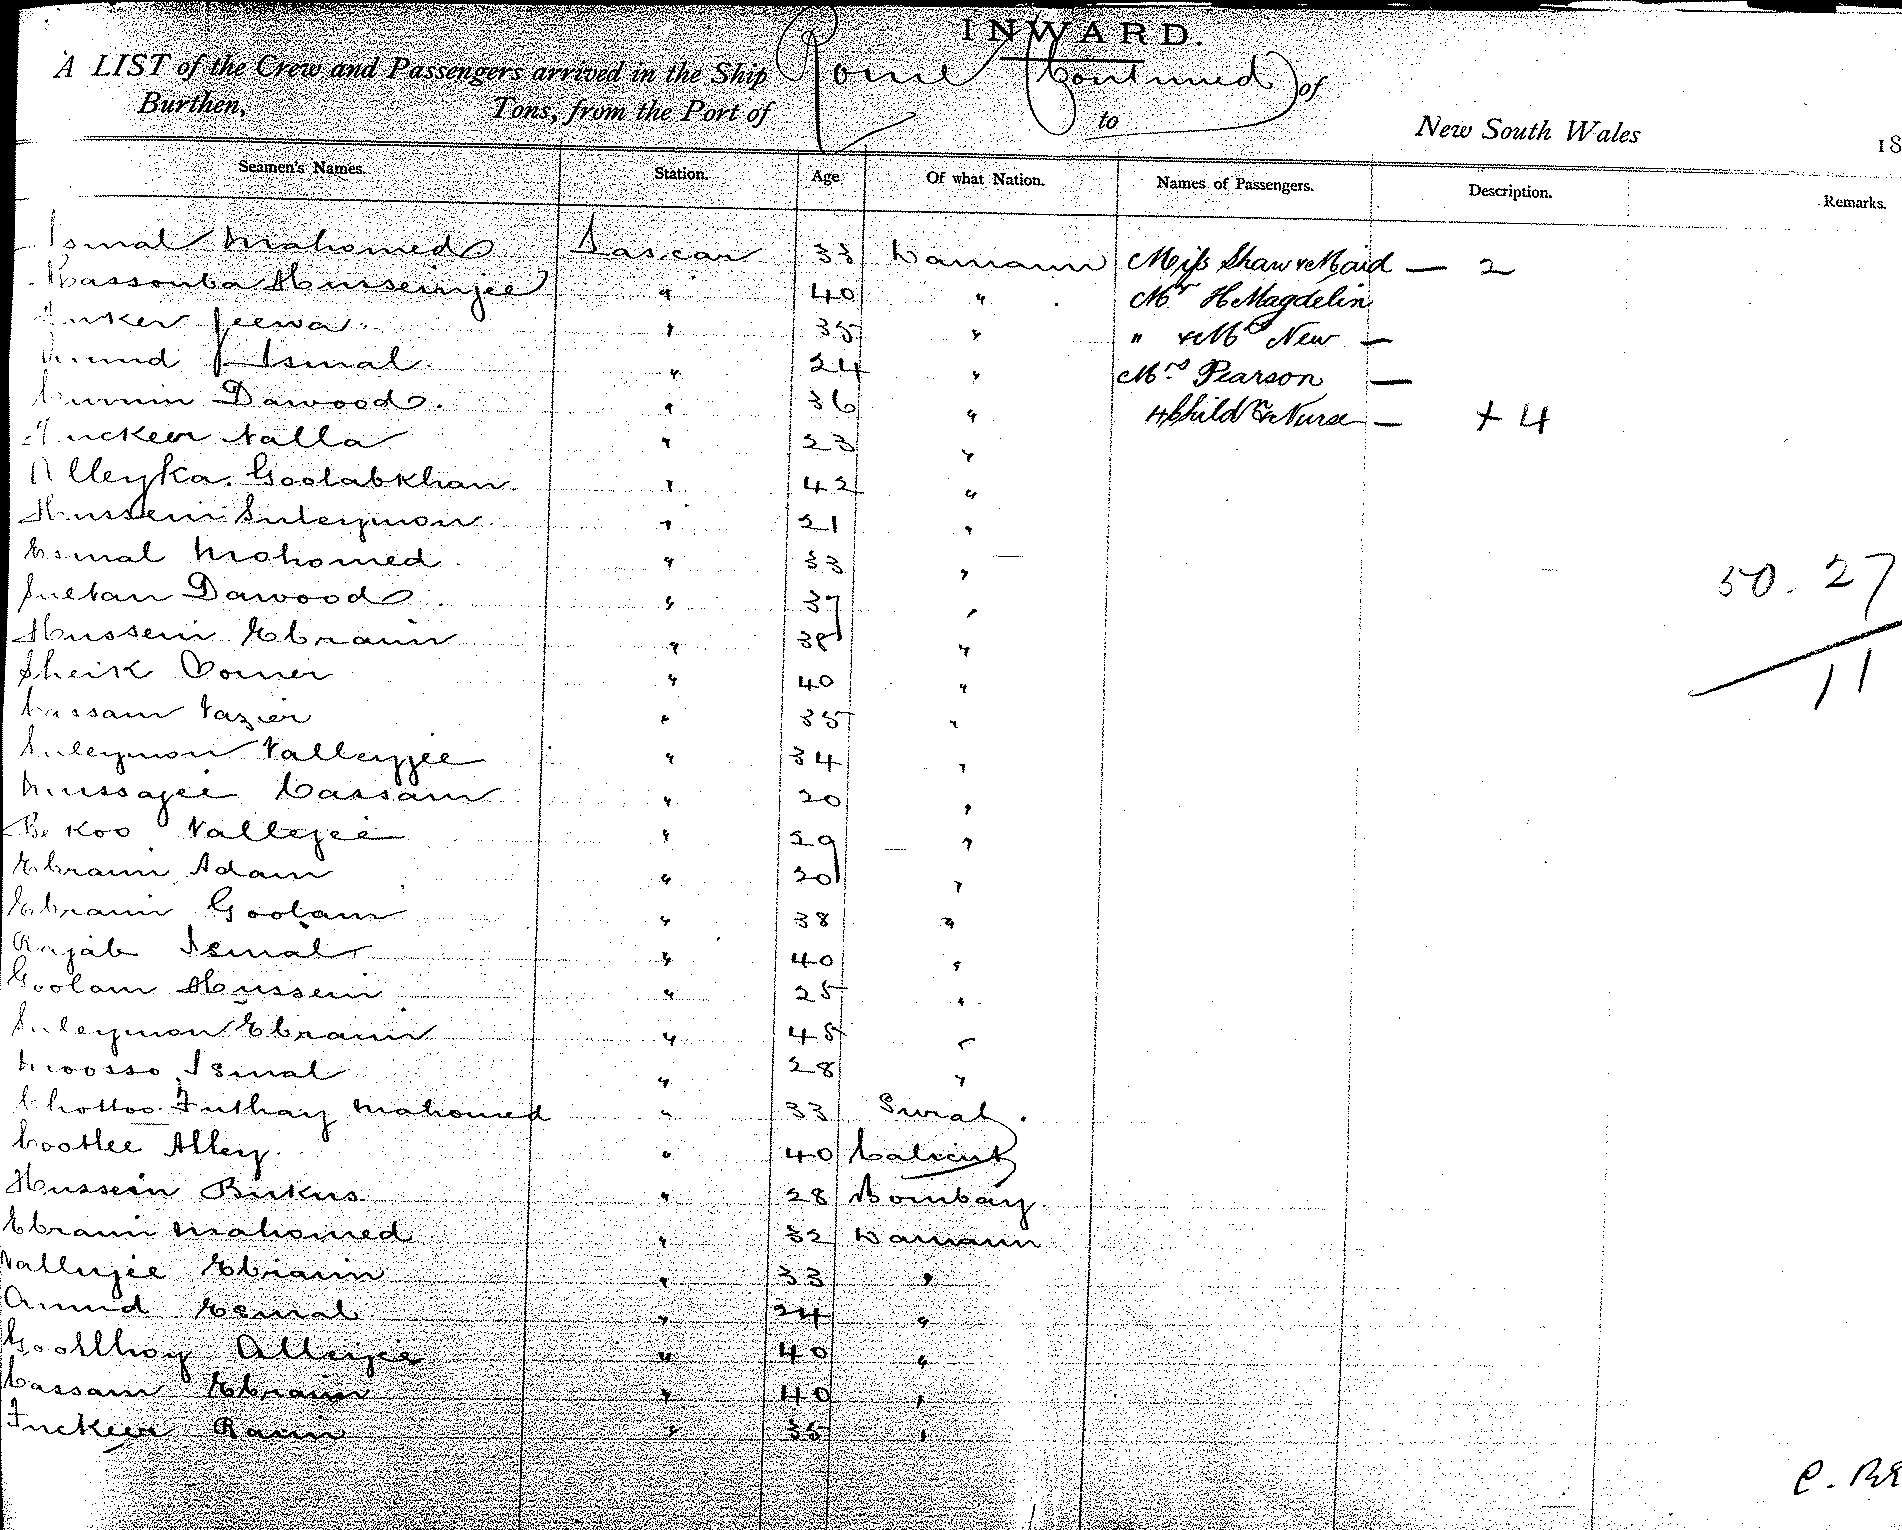 INWARD.
A LIST of the Crew and Passengers arrived in the Ship Rome (Continued) of
Burthen, Tons, from the Port of to New South Wales 18
Seamen's Names. Station. Age Of what Nation. Names of Passengers. Description. Remarks.
Ismal Mahomed Lascar 33 Damaun Miss Shaw & Maid — 2
Husseinjee " 40 " Mr H Magdelin
Jeewa " 35 " " & Mrs New —
Ismal " 24 " Mrs Pearson —
Dawood " 36 " 4 Child & Nurse — + 4
Fuckeer Valla " 23 "
Alleyka Goolabkhan " 42 "
Hussein Suleymon " 21 "
Esmal Mahomed " 33 "
50. 27
Sultan Dawood " 37 "
Hussein Ebraim " 38 "
Sheik Oomer " 40 "
11
Cassam Vazier " 35 "
Suleymon Valleyjee " 34 "
Mussajee Cassam " 20 "
Bekoo Vallejee " 29 "
Ebraim Adam " 20 "
Ebraim Goolam " 38 "
Rajab Ismal " 40 "
Goolam Hussein " 25 "
Suleymon Ebraim " 45 "
Moosso Ismal " 28 "
Chottoo Futhay Mahomed " 33 Surat.
Cootlee Alley " 40 Calicut
Hussein Bukus " 28 Bombay
Ebraim Mahomed " 32 Damaun
Vallejee Ebraim " 33 "
Amud Esmal " 24 "
Allejee " 40 "
Cassam Ebraim " 40 "
Fuckeer Raim " 35 "